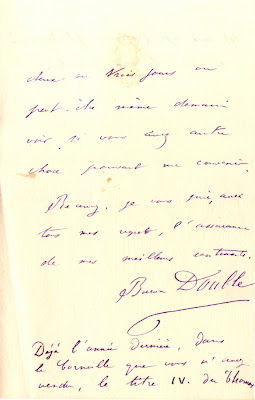 deux ou trois jours ou
peut-être même demain
voir si vous avez autre
chose pouvant me convenir.
Recevez, je vous prie, avec
tous mes regrets, l'assurance
de mes meilleurs sentiments.
Baron Double
Déjà l'année dernière, dans
le Corneille que vous m'avez
vendu, le titre IV. du Thomas